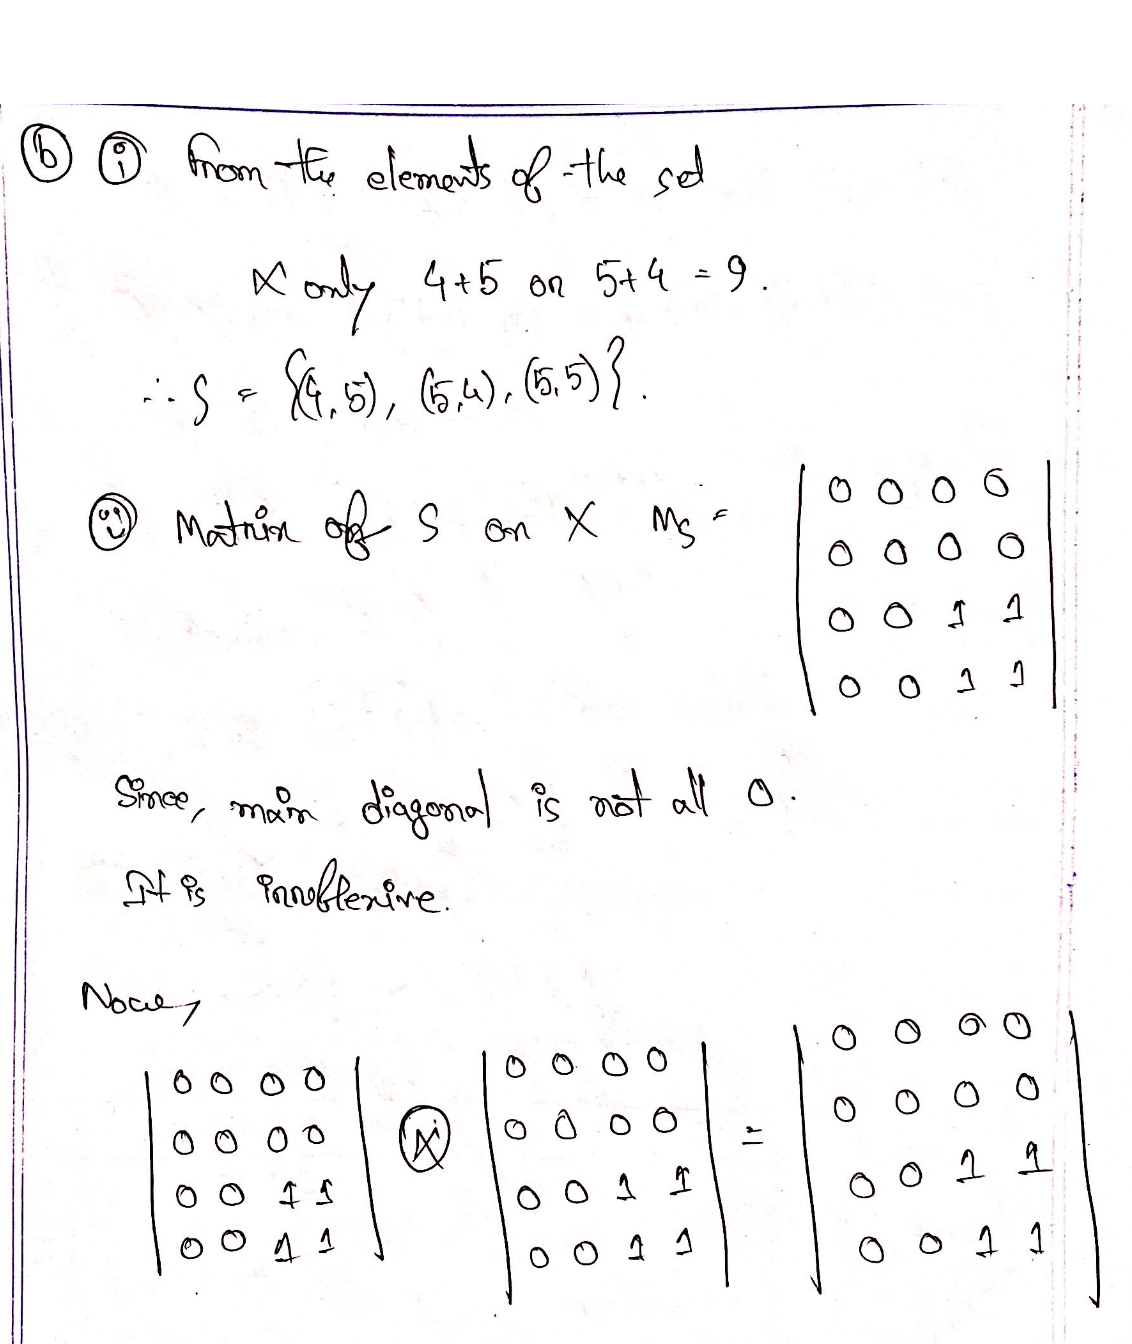 (b) (i) From the elements of the set
X only 4+5 or 5+4 = 9.
∴ S = {(4,5), (5,4), (5,5)}.
(ii) Matrix of S on X M_S =
0 0 0 0
0 0 0 0
0 0 1 1
0 0 1 1
Since, main diagonal is not all 0.
It is irreflexive.
Now,
0 0 0 0 (X) 0 0 0 0 = 0 0 0 0
0 0 0 0 0 0 0 0 0 0 0 0
0 0 1 1 0 0 1 1 0 0 1 1
0 0 1 1 0 0 1 1 0 0 1 1